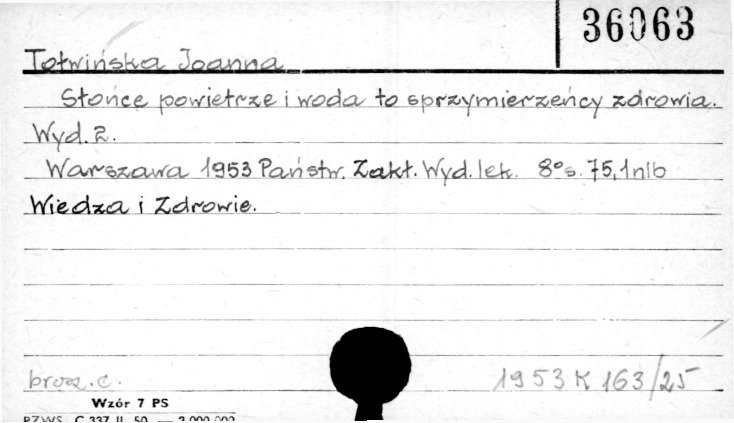 36063
Tołwińska Joanna
Słońce powietrze i woda to sprzymierzeńcy zdrowia.
Wyd. 2.
Warszawa 1953 Państw. Zakł. Wyd. lek. 8° s. 75, 1 nlb
Wiedza i Zdrowie.
brosz. c. 1953 K 163/25
Wzór 7 PS
PZWS. C 337 II. 50. — 2.000.000